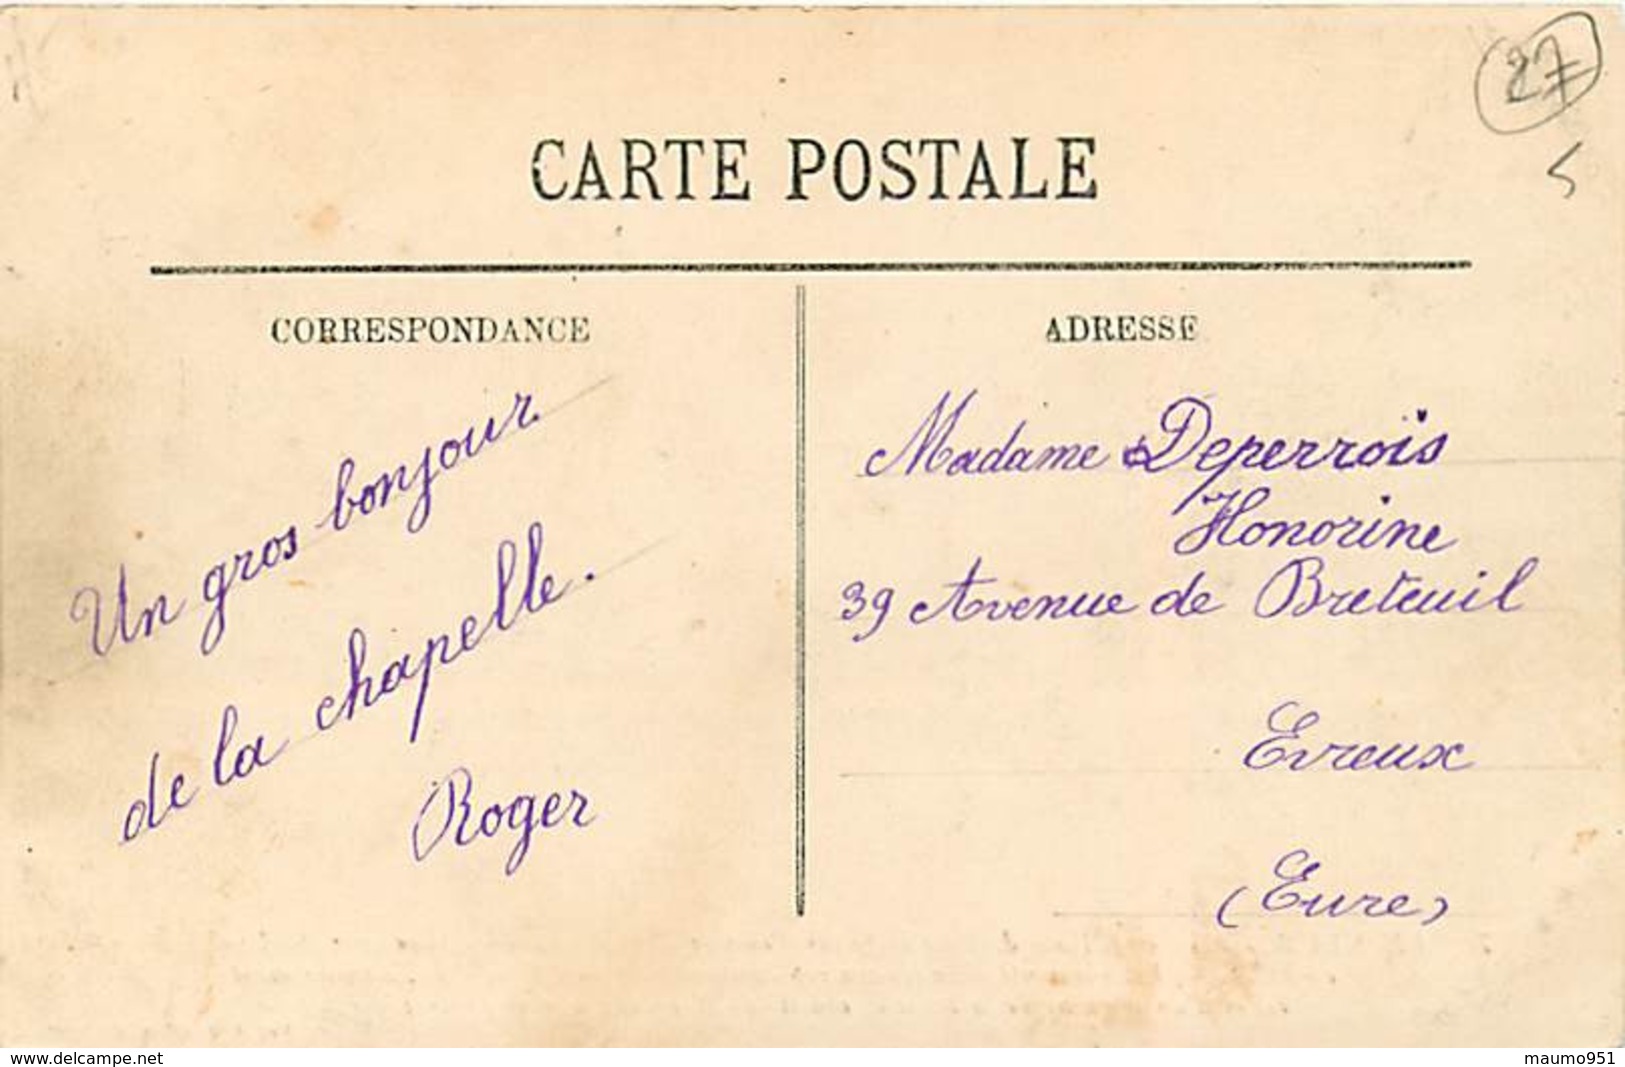 27
5
CARTE POSTALE
CORRESPONDANCE
Un gros bonjour
de la chapelle.
Roger
ADRESSE
Madame Deperrois
Honorine
39 Avenue de Breteuil
Evreux
(Eure)
www.delcampe.net
maumo951